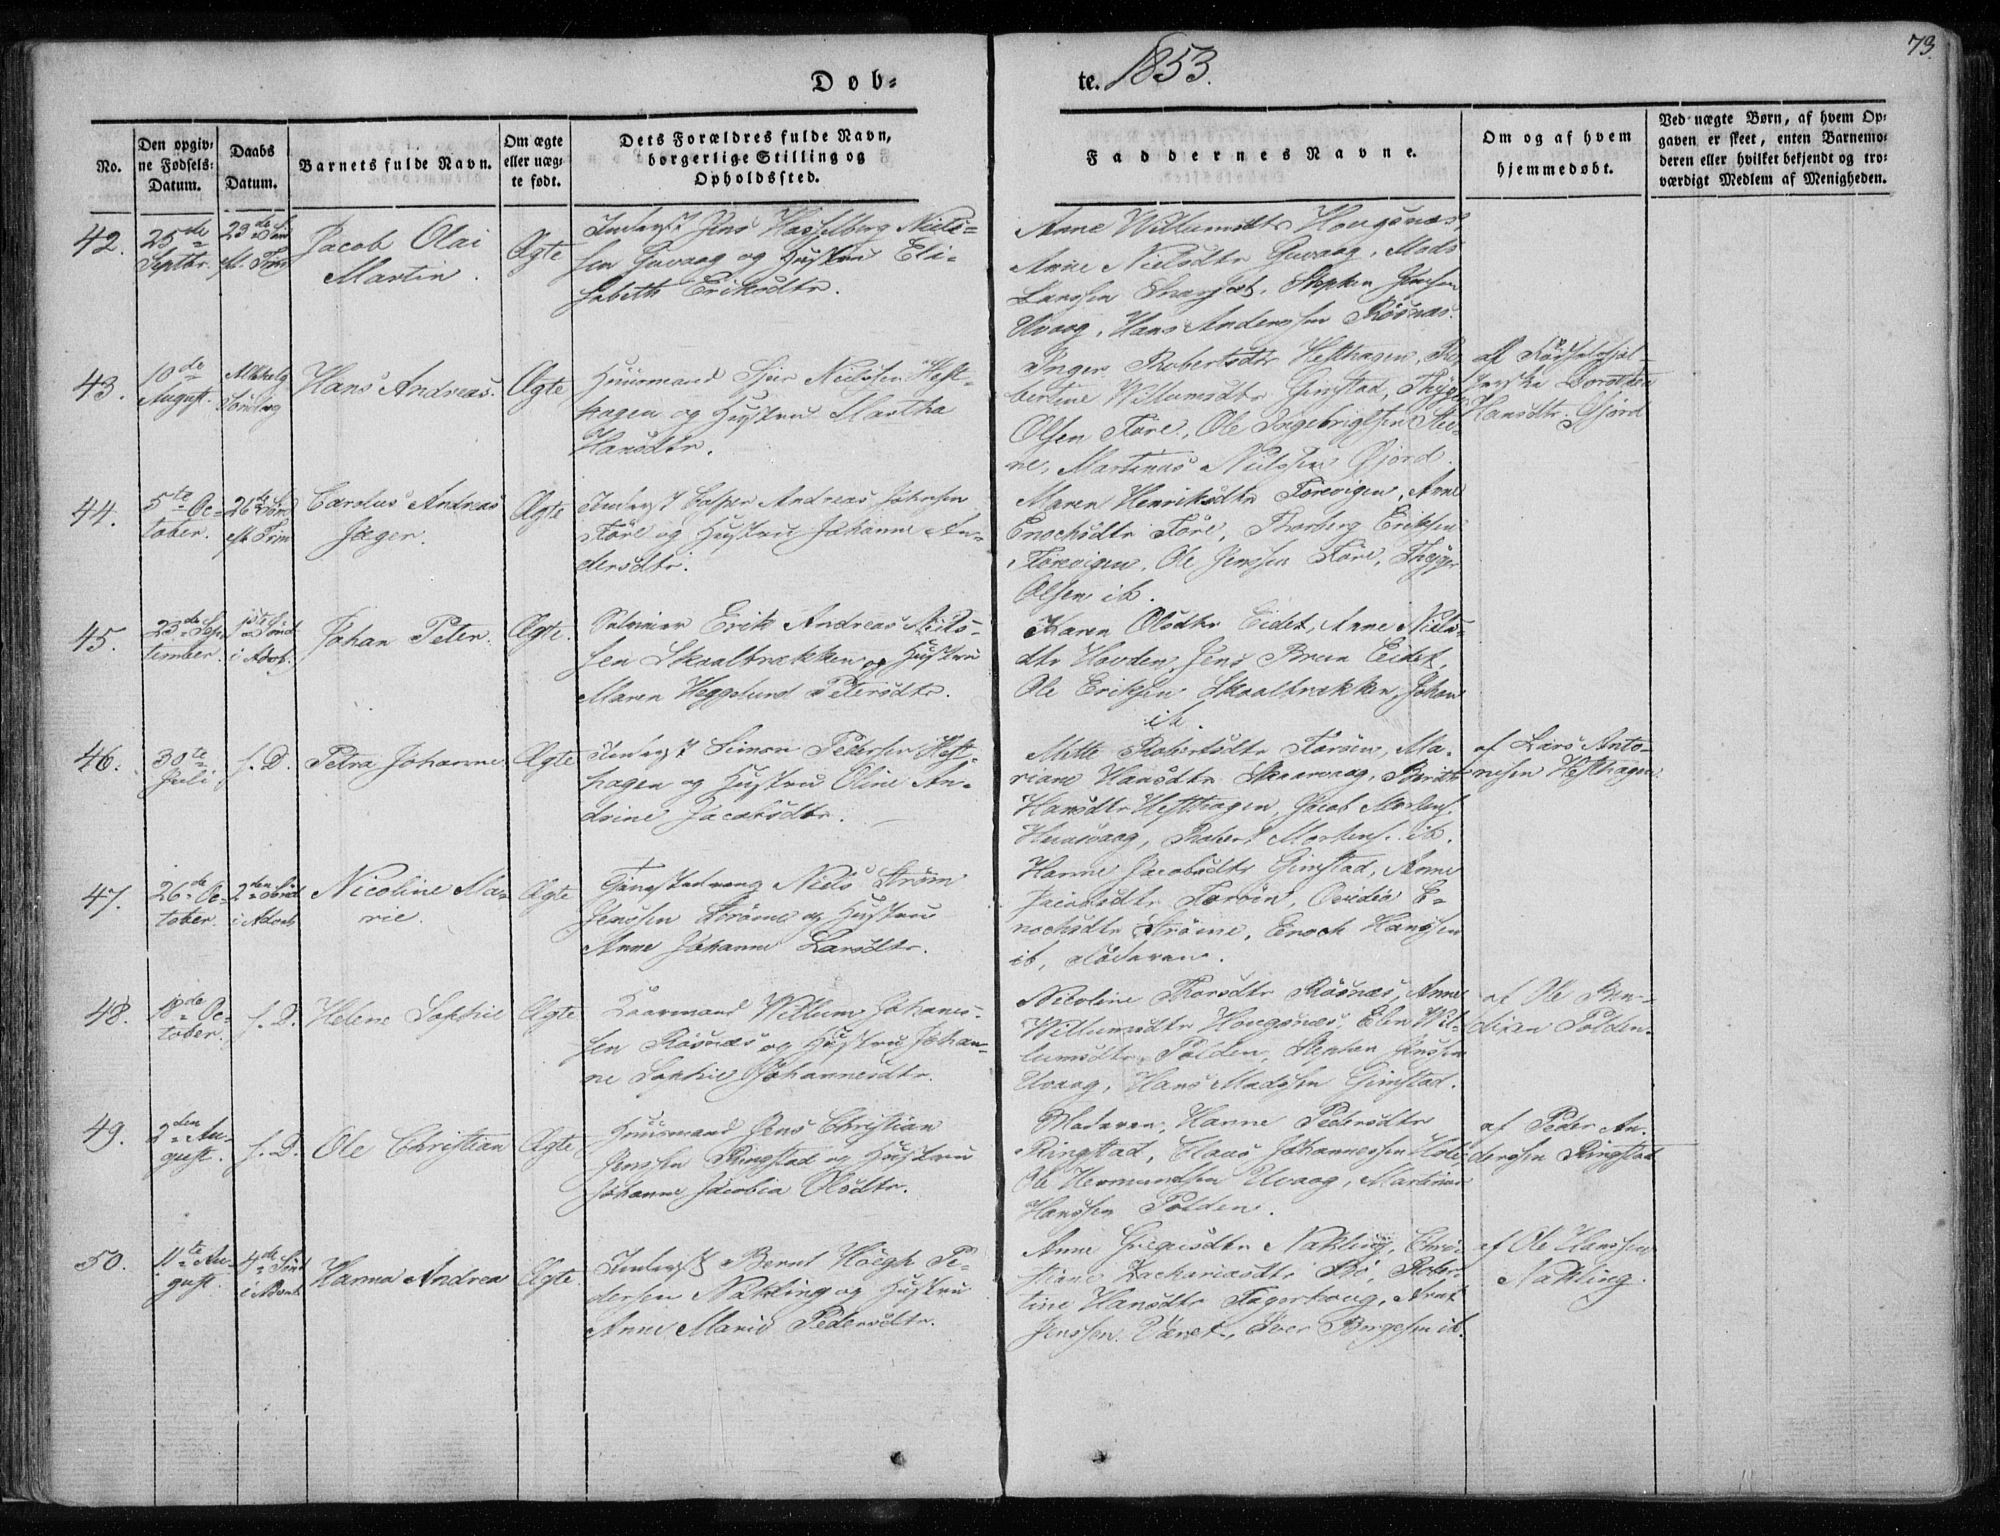 73.
Døb-
te. 1853.
No.
Den opgiv-
ne Fødsels-
Datum.
Daabs
Datum.
Barnets fulde Navn.
Om ægte
eller uæg-
te født.
Dets Forældres fulde Navn,
borgerlige Stilling og
Opholdssted.
Faddernes Navne.
Om og af hvem
hjemmedøbt.
Ved uægte Børn, af hvem Op-
gaven er skeet, enten Barnemo-
deren eller hvilket bekjendt og tro-
værdigt Medlem af Menigheden.
42.
25de
Septbr.
23de Sønd
eft. Trin
Jacob Olai
Martin.
Ægte
Inderst Jens Hasselberg Niels-
sen Guvaag og Hustru Eli-
sabeth Eriksdtr.
Anne Willumsdtr Hougsnæs,
Anne Nielsdtr Guvaag, Mads
Larssen Stephen Jensen
Uvaag, Hans Anderssen Røsnæs.
43.
10de
August.
Allehelg
Søndag
Hans Andreas.
Ægte
Huusmand Nielssen Heft-
hagen og Hustru Martha
Hansdtr.
Inger Robertsdtr Hefthagen, Ro-
bertine Willumsdtr Gimstad, Thøger
Olsen Føre, Ole Ingebrigtsen Stee-
ne, Martinus Nielssen Gjørd.
af Fødselshjæl-
perske Dorothea
Hansdtr. Gjørd
44.
5te Oc-
tober.
26de Sønd
eft. Trin
Carolus Andreas
Jæger.
Ægte
Inderst Casper Andreas Johnsen
Føre og Hustru Johanne An-
dersdtr.
Maren Henriksdtr Forevigen, Anne
Enochsdtr Føre, Thorberg Eriksen
Forevigen, Ole Jenssen Føre, Thøger
Olsen ib.
45.
23de Sep-
tember.
1ste Sønd
i Advt.
Johan Peter.
Ægte.
Erik Andreas Niels-
sen Skaalbrækken og Hustru
Maren Hegglund Petersdtr.
Karen Olsdtr Eidet, Anne Niels-
dtr Hovden, Jens Breen Eidet,
Ole Eriksen Skaalbrækken, Johan
ib.
46.
30te
Juli
s. D.
Petra Johanne
Ægte
Inderst Simon Pedersen Heft-
hagen og Hustru Oline An-
drine Jacobsdtr.
Mette Robertsdtr Forøen, Ma-
riane Hansdtr Skaarvaag, Berith
Hansdtr Hefthagen, Jacob Mortens.
Robert Mortens. ib.
af Lars Anto-
nesen Hefthagen
47.
26de Oc-
tober.
2den Sønd
i Advt
Nicoline Ma-
rie.
Ægte
Niels Strøm
Jenssen Strøme og Hustru
Anne Johanne Larsdtr.
Hanne Jacobsdtr Gimstad, Anne
Jacobsdtr Forøen, Ovidia E-
nochsdtr Strøme, Enoch Hanssen
ib, Faderen.
48.
18de Oc-
tober.
s. D.
Helene Sophie
Ægte
Gaarmand Willum Johannes-
sen Røsnæs og Hustru Johan-
ne Sophie Johannesdtr.
Nicoline Thorsdtr Røsnæs, Anne
Willumsdtr Hougsnæs, Elen Wil-
lumsdtr Polden, Stephen Jenssen
Uvaag, Hans Madssen Gimstad.
af Ole Ben-
dixen Polden.
49.
2den Au-
gust.
s. D.
Ole Christian
Ægte
Huusmand Jens Christian
Jenssen Ringstad og Hustru
Johanne Jacobia Olsdtr.
Moderen, Hanne Pedersdtr
Ringstad, Claus Johannessen Holei,
Ole Hermundsen Uvaag, Martinus
Hanssen Polden.
af Peder An-
derssen Ringstad
50.
11te Au-
gust.
4de Sønd
i Advt.
Hanna Andrea
Ægte.
Inderst Bernt Høegh Pe-
dersen Nøkling og Hustru
Anne Marie Pedersdtr.
Anne Nøkling, Chri-
stiane Zachariasdtr Bø, Rober-
tine Hansdtr Fagerhoug, Arnt
Jenssen Vænet, Iver Borgesen ib.
af Ole Hanssen
Nøkling.